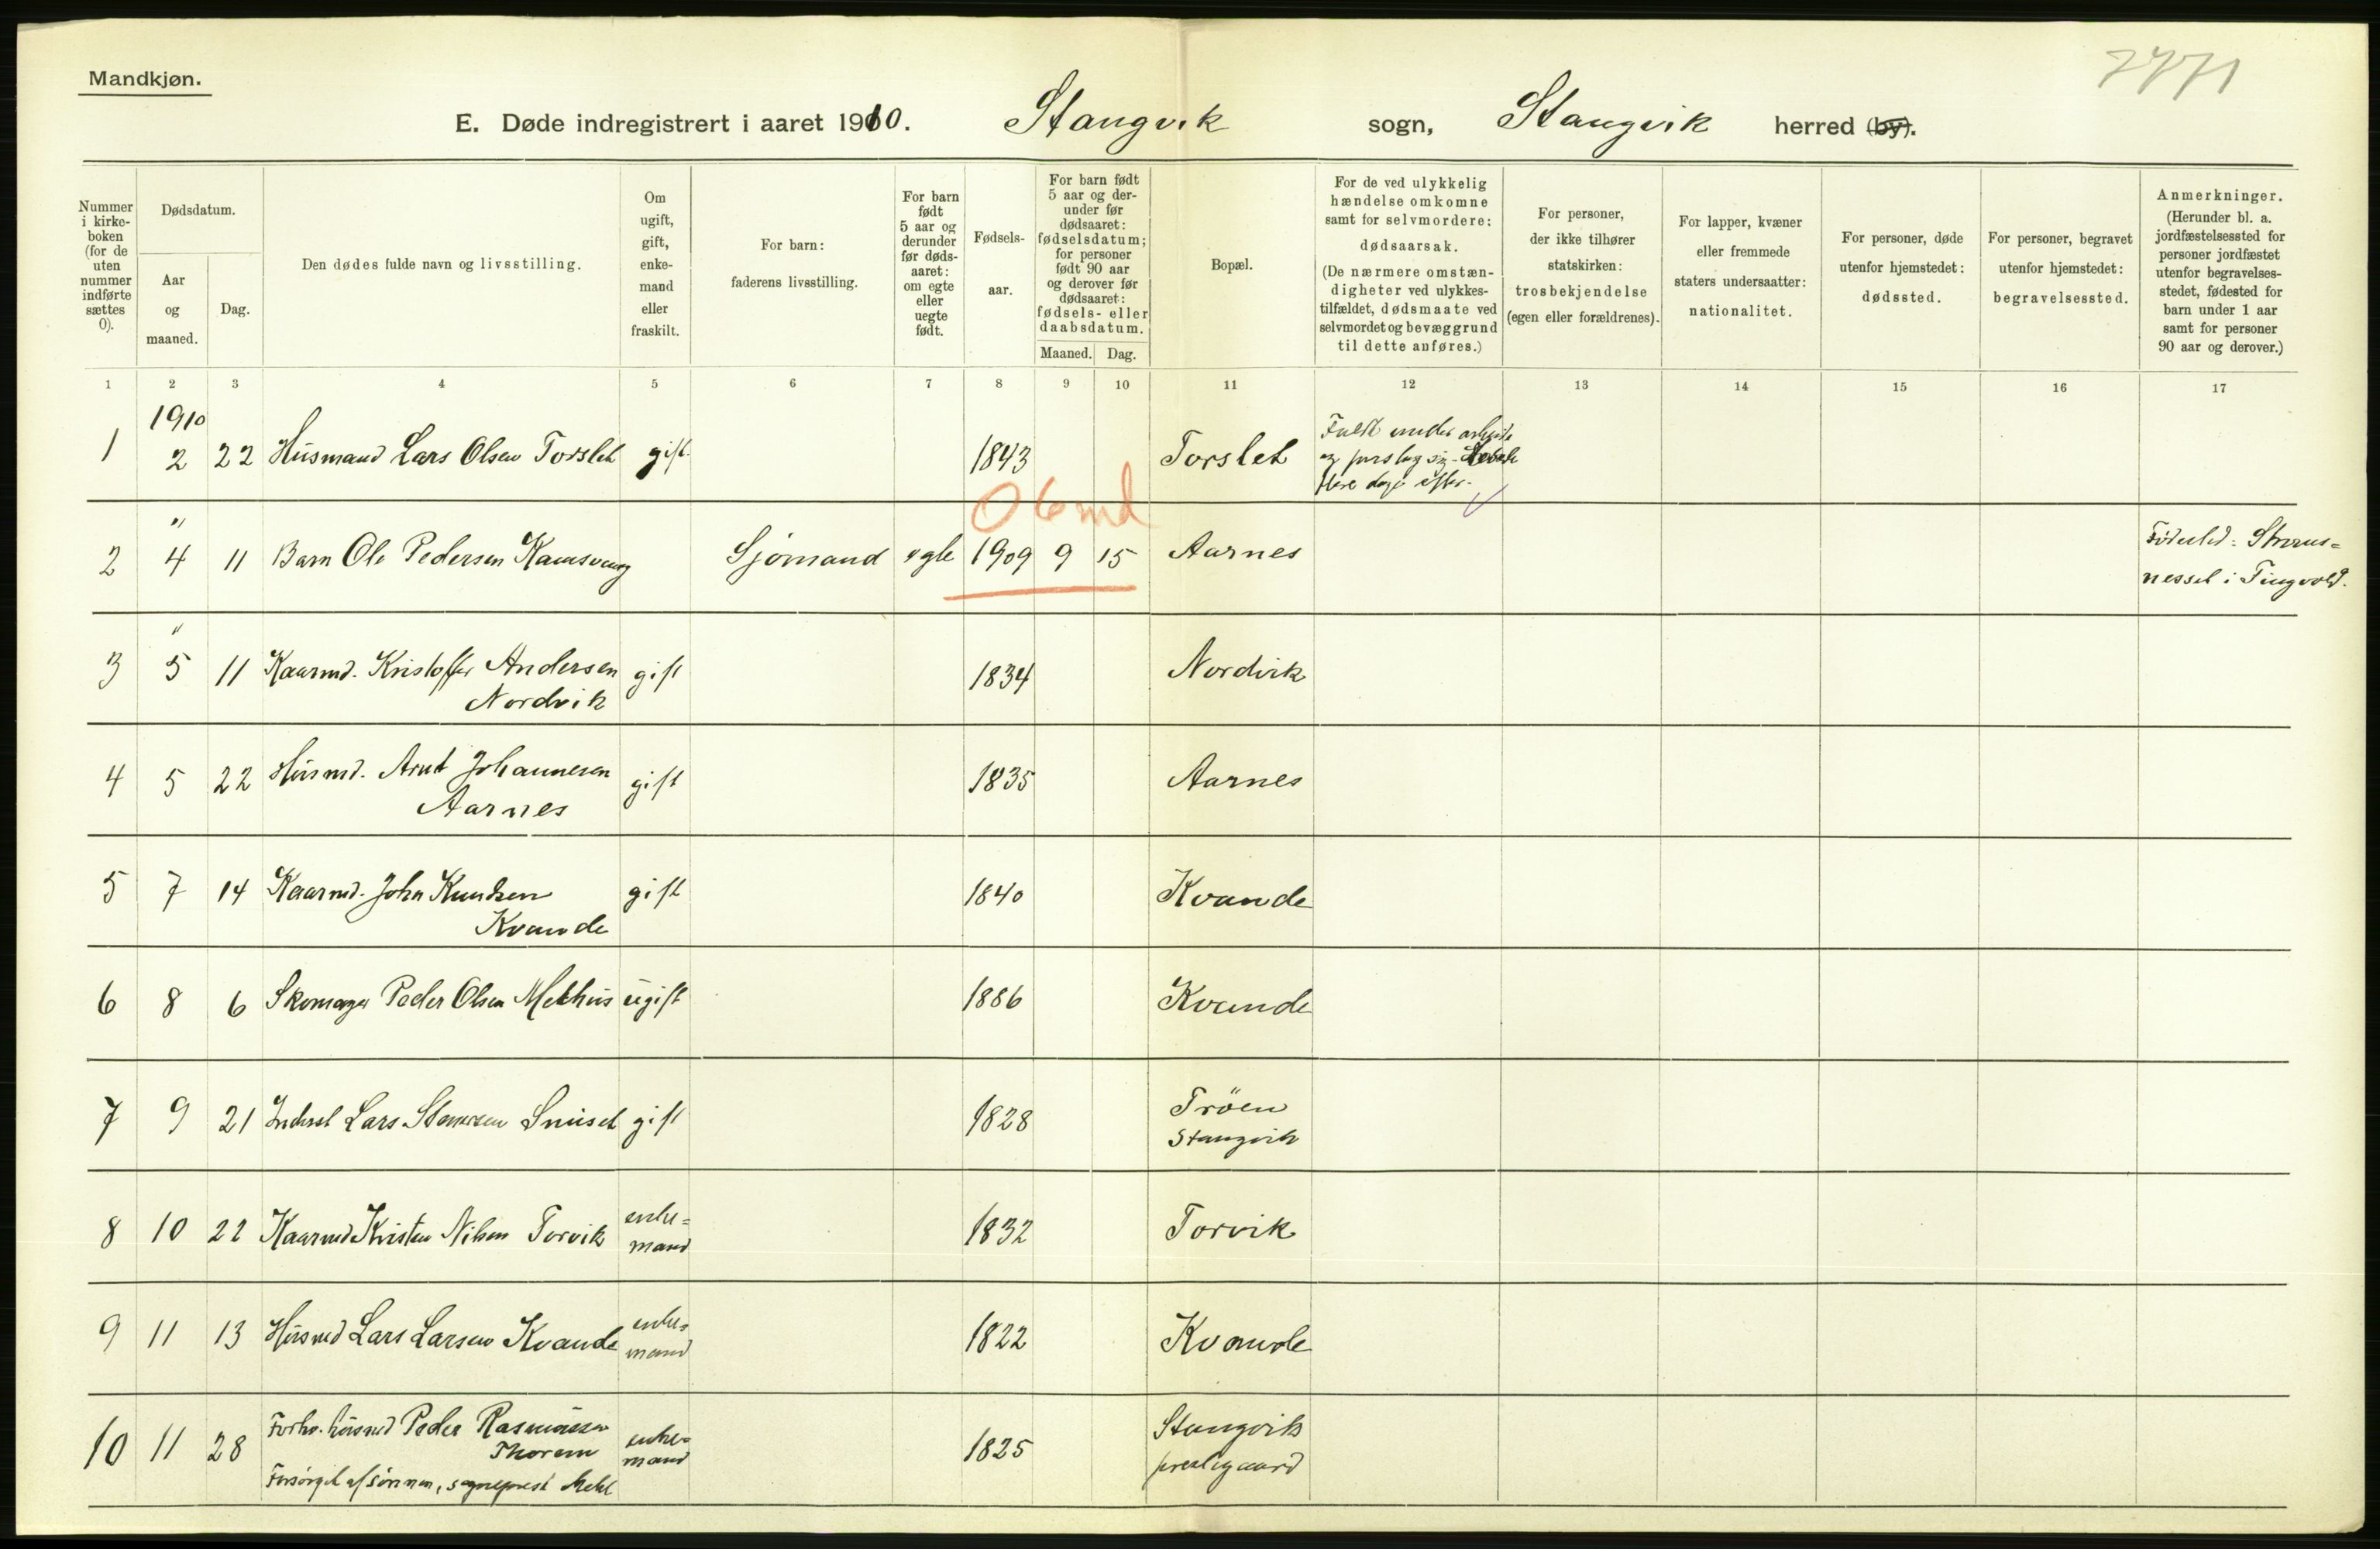 Mandkjøn.
7771
E. Døde indregistrert i aaret 1910. Stangvik sogn, Stangvik herred (by).
Nummer
i kirke-
boken
(for de
uten
nummer
indførte
sættes
0).
Dødsdatum.
Aar
og
maaned.
Dag.
Den dødes fulde navn og livsstilling.
Om
ugift,
gift,
enke-
mand
eller
fraskilt.
For barn:
faderens livsstilling.
For barn
født
5 aar og
derunder
før døds-
aaret:
om egte
eller
uegte
født.
Fødsels-
aar.
For barn født
5 aar og der-
under før
dødsaaret:
fødselsdatum;
for personer
født 90 aar
og derover før
dødsaaret:
fødsels- eller
daabsdatum.
Maaned. Dag.
Bopæl.
For de ved ulykkelig
hændelse omkomne
samt for selvmordere:
dødsaarsak.
(De nærmere omstæn-
digheter ved ulykkes-
tilfældet, dødsmaate ved
selvmordet og bevæggrund
til dette anføres.)
For personer,
der ikke tilhører
statskirken:
trosbekjendelse
(egen eller forældrenes).
For lapper, kvæner
eller fremmede
staters undersaatter:
nationalitet.
For personer, døde
utenfor hjemstedet:
dødssted.
For personer, begravet
utenfor hjemstedet:
begravelsessted.
Anmerkninger.
(Herunder bl. a.
jordfæstelsessted for
personer jordfæstet
utenfor begravelses-
stedet, fødested for
barn under 1 aar
samt for personer
90 aar og derover.)
1 2 3 4 5 6 7 8 9 10 11 12 13 14 15 16 17
1910
1 2 22 Husmand Lars Olsen Torslet gift 1843 Torslet
Faldt under arbeide
og forslog sig.
flere dage efter.
0 6 md
"
2 4 11 Barn Ole Pedersen Sjømand egte 1909 9 15 Aarnes
Fødested:
nesset i Tingvold.
"
3 5 11 Kaarmd. Kristoffer Andersen gift 1834 Nordvik
Nordvik
4 5 22 Husmd. Arnt Johannesen gift 1835 Aarnes
Aarnes
5 7 14 Kaarmd. John Knudsen gift 1840 Kvande
Kvande
6 8 6 Skomager Peder Olsen Melhus ugift 1886 Kvande
7 9 21 Inderst Lars Snuset gift 1828 Trøen
Stangvik
8 10 22 Kaarmd Kristen Nilsen Torvik enke= 1832 Torvik
mand
9 11 13 Husmd Lars Larsen Kvande enke= 1822 Kvande
mand
10 11 28 Forhv. husmd Peder Rasmussen enke= 1825 Stangvik
Thorem mand prestegaard
Forsørget af sønnen, sogneprest